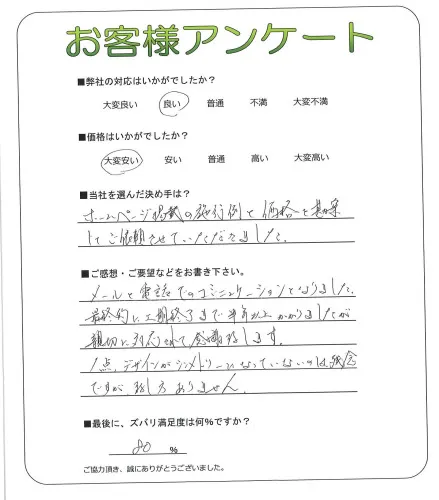 お客様アンケート
■弊社の対応はいかがでしたか？
大変良い 良い 普通 不満 大変不満
■価格はいかがでしたか？
大変安い 安い 普通 高い 大変高い
■当社を選んだ決め手は？
ホームページ掲載の施行例と価格を勘案
してご依頼させていただきました。
■ご感想・ご要望などをお書き下さい。
メールと電話でのコミュニケーションとなりました。
最終的に工期終了まで半年以上かかりましたが
親切に対応されて感謝致します。
1点、デザインがシンメトリーになっていないのは残念
ですが、致し方ありません。
■最後に、ズバリ満足度は何%ですか？
80 %
ご協力頂き、誠にありがとうございました。